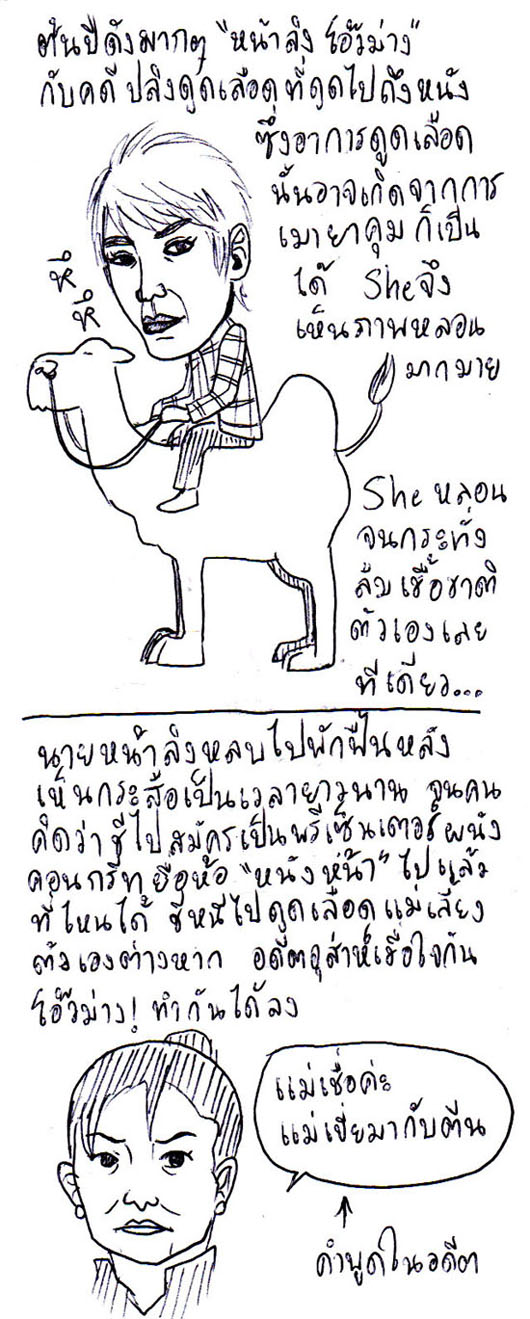 ต้นปีดังมากๆ "หน้าลิง โอ๊วม่าง"
กับคดี ปลิงดูดเลือด ที่ดูดไปถึงหนัง
ซึ่งอาการดูดเลือด
นั้นอาจเกิดจากการ
เมายาคุม ก็เป็น
ได้ Sheจึง
เห็นภาพหลอน
มากมาย
หึ
หึ
She หลอน
จนกระทั่ง
ลืมเชื้อชาติ
ตัวเองเลย
ทีเดียว...
นายหน้าลิงหลบไปพักฟื้นหลัง
เห็นกระสือเป็นเวลายาวนาน จนคน
คิดว่าชีไปสมัครเป็นพรีเซ็นเตอร์ผนัง
คอนกรีท ยี่อห้อ "หนังหน้า" ไปแล้ว
ที่ไหนได้ ชีหนีไปดูดเลือดแม่เลี้ยง
ตัวเองต่างหาก อดีตอุส่าห์เชื่อใจกัน
โอ๊วม่าง! ทำกันได้ลง
แม่เชื่อค่ะ
แม่เขี่ยมากับตีน
คำพูดในอดีต